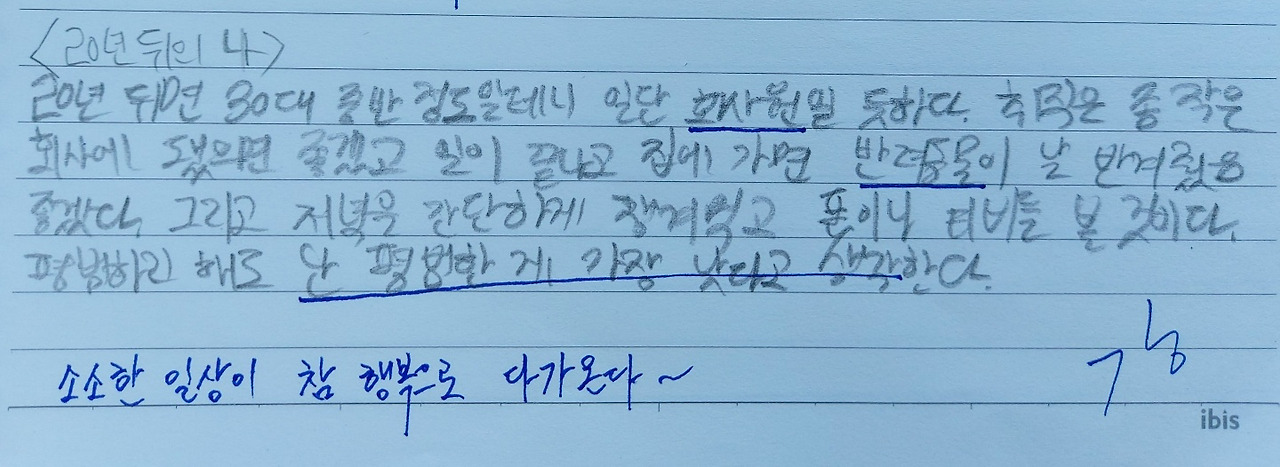 <20년 뒤의 나>
20년 뒤면 30대 중반 정도일테니 일단 회사원일 듯하다. 취직은 좀 작은
회사에 됐으면 좋겠고 일이 끝나고 집에 가면 반려동물이 날 반겨줬음
좋겠다. 그리고 저녁은 간단하게 챙겨먹고 폰이나 티비를 볼 것이다.
평범하긴 해도 난 평범한 게 가장 낫다고 생각한다.
소소한 일상이 참 행복으로 다가온다~
ibis